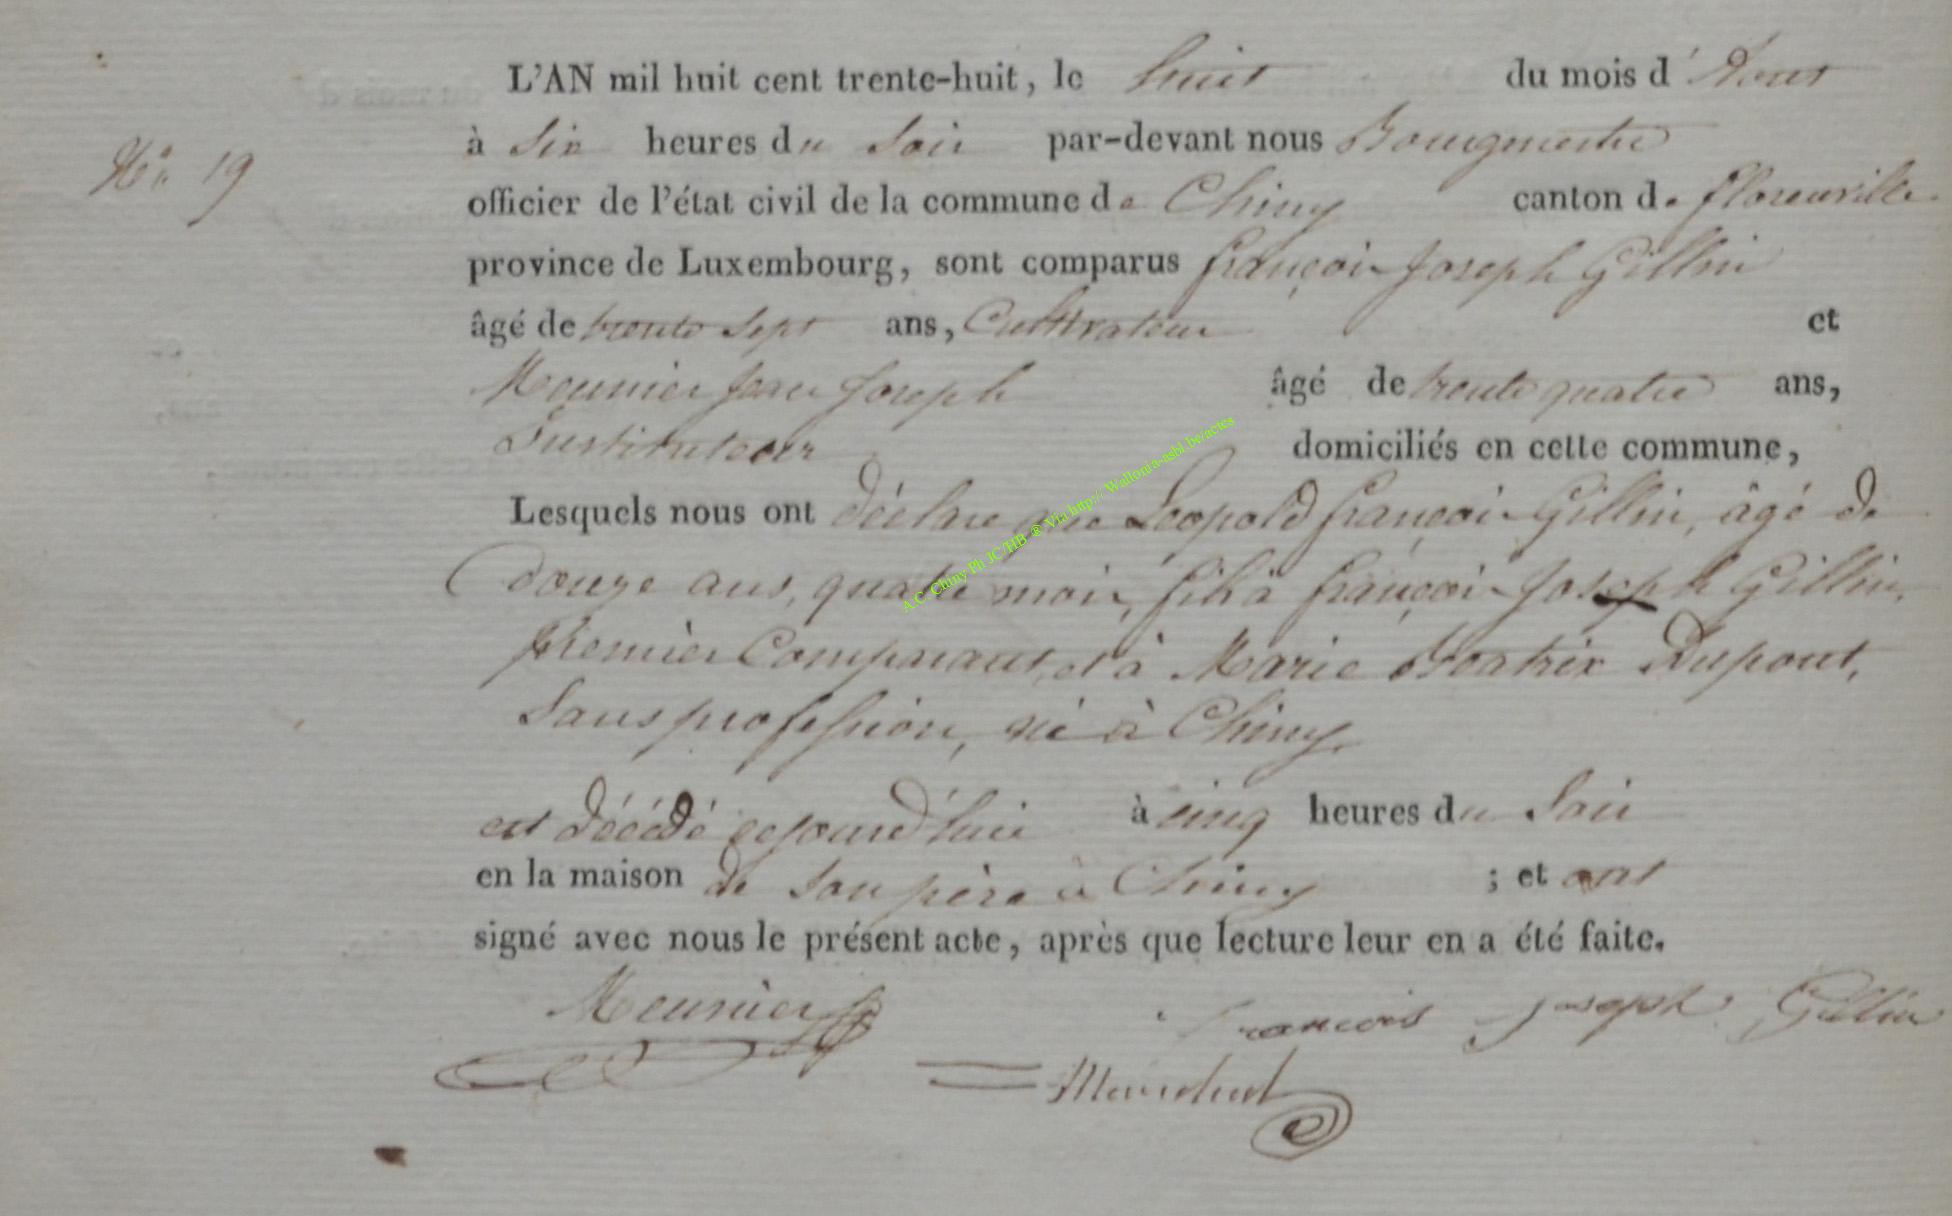 L'AN mil huit cent trente-huit, le huit du mois d'Aout
No. 19
à Six heures du Soir par-devant nous Bourgmestre
officier de l'état civil de la commune de Chiny canton de florenville
province de Luxembourg, sont comparus françois Joseph Gillin
âgé de trente Sept ans, Cultivateur et
Meunier Jean Joseph âgé de trente quatre ans,
Instituteur domiciliés en cette commune,
Lesquels nous ont déclaré que Leopold françois Gillin, âgé de
douze ans, quatre mois, fils à françois Joseph Gillin,
premier Comparant, et à Marie Beatrix Dupont,
Sans profession, né à Chiny,
est décédé cejourd'hui à cinq heures du Soir
en la maison de Son père à Chiny ; et ont
signé avec nous le présent acte, après que lecture leur en a été faite.
Meunier francois Joseph Gillin
A.C. Chiny Ph JC/HB ® Via http:// Wallonia-asbl.be/actes